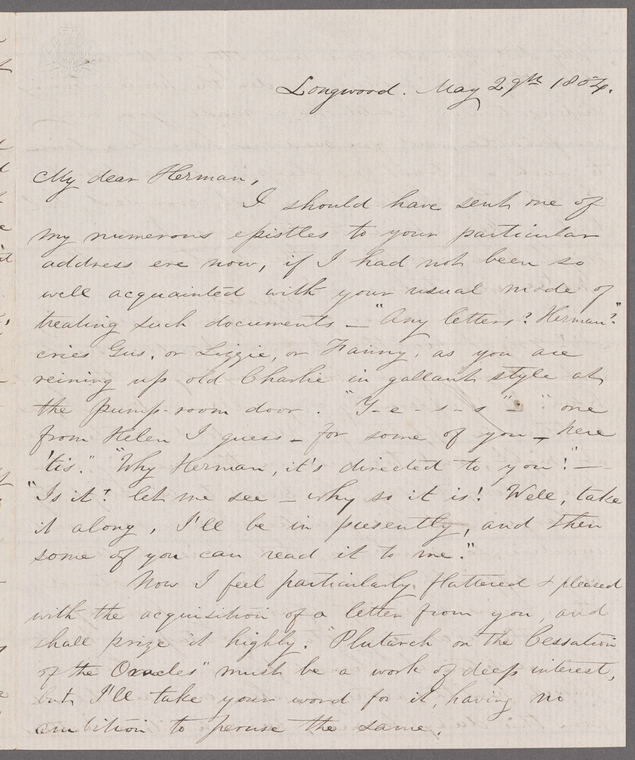 Longwood. May 29th 1854.
My dear Herman,
I should have sent one of
my numerous epistles to your particular
address ere now, if I had not been so
well acquainted with your usual mode of
treating such documents — "Any letters? Herman?"
cries Gus, or Lizzie, or Fanny, as you are
reining up old Charlie in gallant style at
the pump-room door. "Y-e-s-s" - " one
from Helen I guess - for some of you - here
'tis." "Why Herman, it's directed to you!" —
"Is it? let me see - why so it is! Well, take
it along, I'll be in presently, and then
some of you can read it to me."
Now I feel particularly flattered & pleased
with the acquisition of a letter from you, and
shall prize it highly. "Plutarch on the Cessation
of the Oracles" must be a work of deep interest,
but I'll take your word for it, having no
ambition to peruse the same.